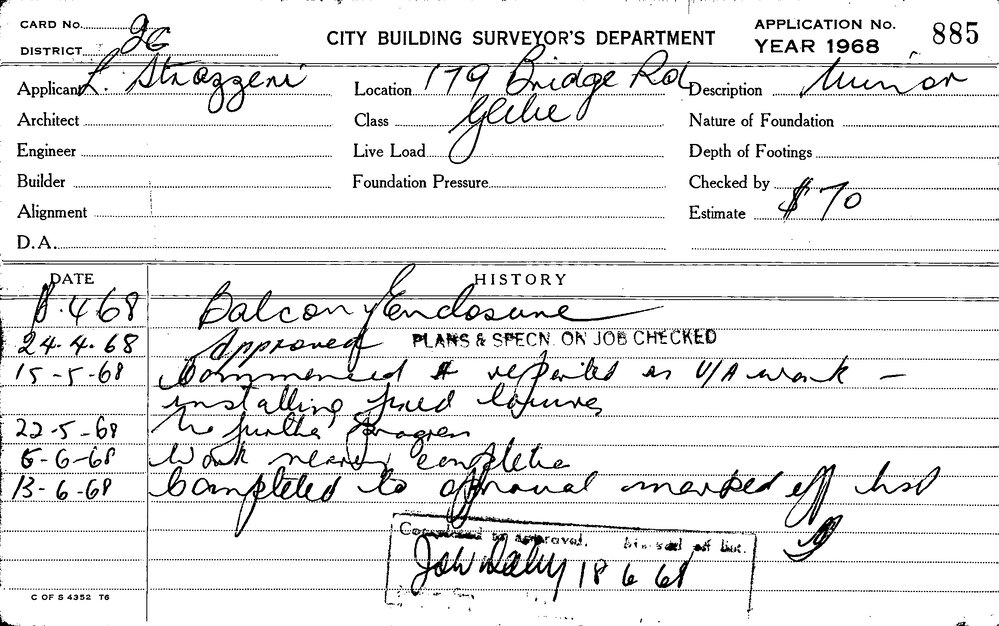 CARD No. 26
DISTRICT
CITY BUILDING SURVEYOR'S DEPARTMENT
APPLICATION No. 885
YEAR 1968
Applicant L. Strazzeri
Location 179 Bridge Rd
Description Minor
Architect
Class Glebe
Nature of Foundation
Engineer
Live Load
Depth of Footings
Builder
Foundation Pressure
Checked by
Alignment
Estimate $70
D.A.
DATE HISTORY
.4.68 Balcony Enclosure
24.4.68 Approved PLANS & SPECN. ON JOB CHECKED
15-5-68 Commenced & reported as U/A work -
installing fixed louvres
22-5-68 No further progress
6-6-68 Work nearly complete
13-6-68 Completed to approval marked off list
Completed to approval. off list.
18 6 68
C OF S 4352 T6